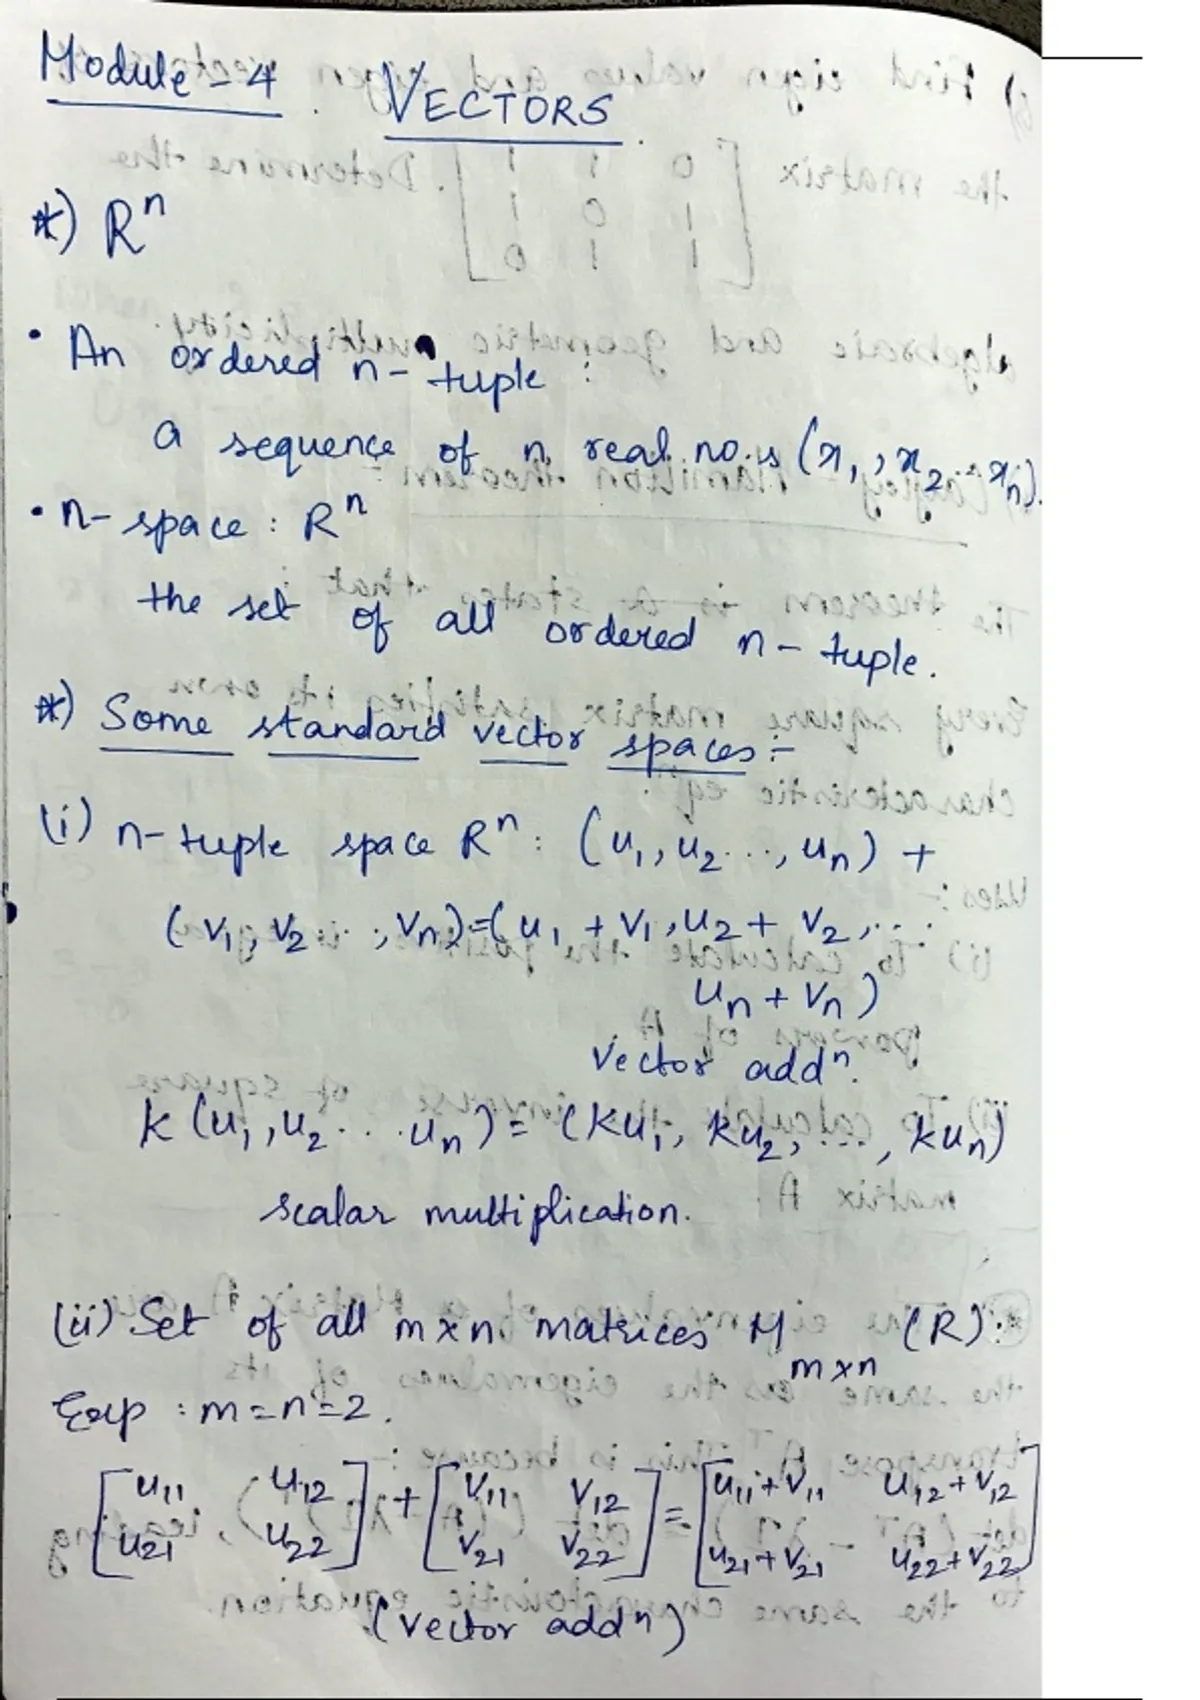 Module - 4 VECTORS
*) Rⁿ
• An ordered n-tuple :
a sequence of n real no.s (x₁, x₂...xₙ).
• n-space : Rⁿ
the set of all ordered n-tuple.
*) Some standard vector spaces :-
(i) n-tuple space Rⁿ : (u₁, u₂..., uₙ) +
(v₁, v₂..., vₙ) = (u₁ + v₁, u₂ + v₂, ...
uₙ + vₙ)
Vector addⁿ.
k (u₁, u₂....uₙ) = (ku₁, ku₂, ..., kuₙ)
scalar multiplication.
(ii) Set of all m×n matrices M m×n (R) :
Exp : m=n=2.
[u₁₁ u₁₂] + [v₁₁ v₁₂] = [u₁₁+v₁₁ u₁₂+v₁₂]
[u₂₁ u₂₂] [v₂₁ v₂₂] [u₂₁+v₂₁ u₂₂+v₂₂]
(vector addⁿ)